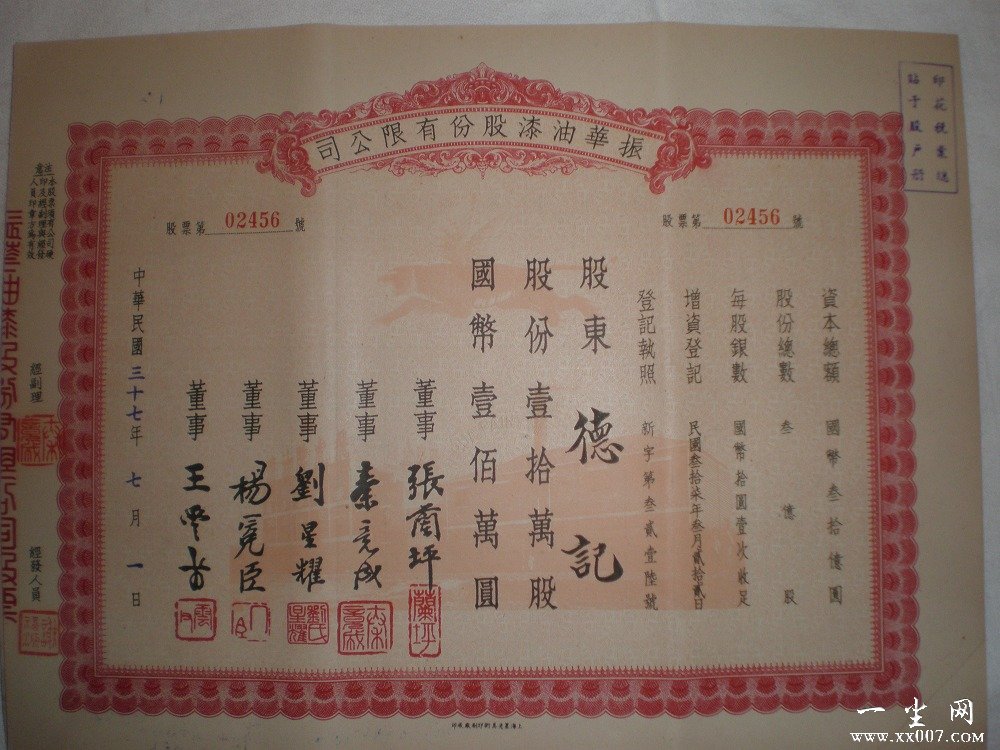 振華油漆股份有限公司
印花稅票總
貼于股戶冊
股票第 02456 號
股票第 02456 號
資本總額 國幣叁拾億圓
股份總數 叁億股
每股銀數 國幣拾圓壹次收足
增資登記 民國叁拾柒年叁月貳拾貳日
登記執照 新字第叁貳壹陸號
股東 德記
股份壹拾萬股
國幣壹佰萬圓
董事 張蘭坪
董事 秦竟成
董事 劉星耀
董事 楊冕臣
董事 王雲甫
蘭坪
劉氏星耀
中華民國三十七年七月一日
注意
本股票須有公司硬
印及經副理與經發
人員印章方為有效
經副理
經發人員
一尘网
www.xx007.com